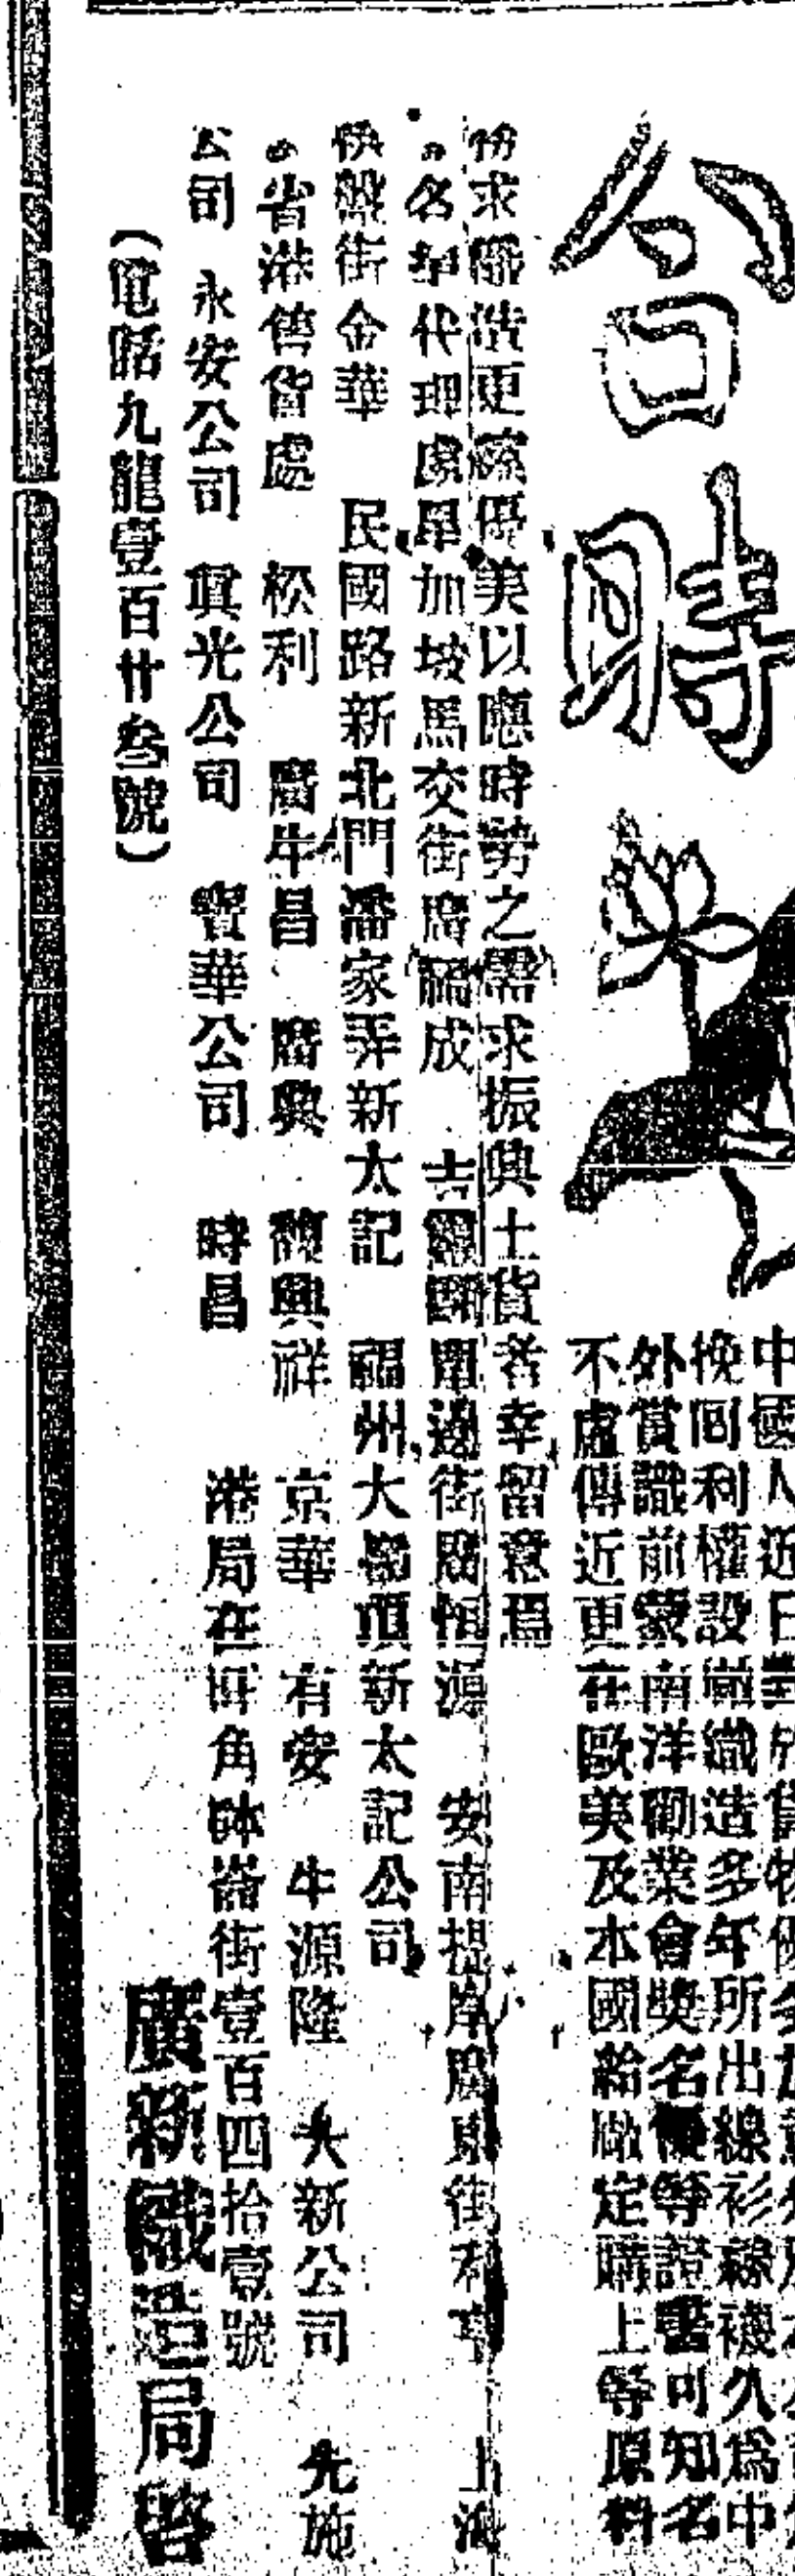 合時
中國人近日
挽回利權設廠織造多年所出線衫線襪久為中
外賞識前蒙南洋勸業會獎名優等證書可知名
不虛傳近更在歐美及本國給廠定購上等原料
務求織造更臻優美以應時勢之需求振興土貨者幸留意焉
名埠代理處星加坡馬交街廣福成 吉隆 街廣恒源 安南堤岸廣東街利 上海
街金華 民國路新北門潘家弄新太記 福州大橋頂新太記公司
省港售貨處 松利 廣生昌 廣興 馥興祥 京華 有安 生源隆 大新公司 先施
公司 永安公司 真光公司 寶華公司 時昌 港局在旺角砵崙街壹百四拾壹號
(電話九龍壹百廿叁號)
廣新織造局啓